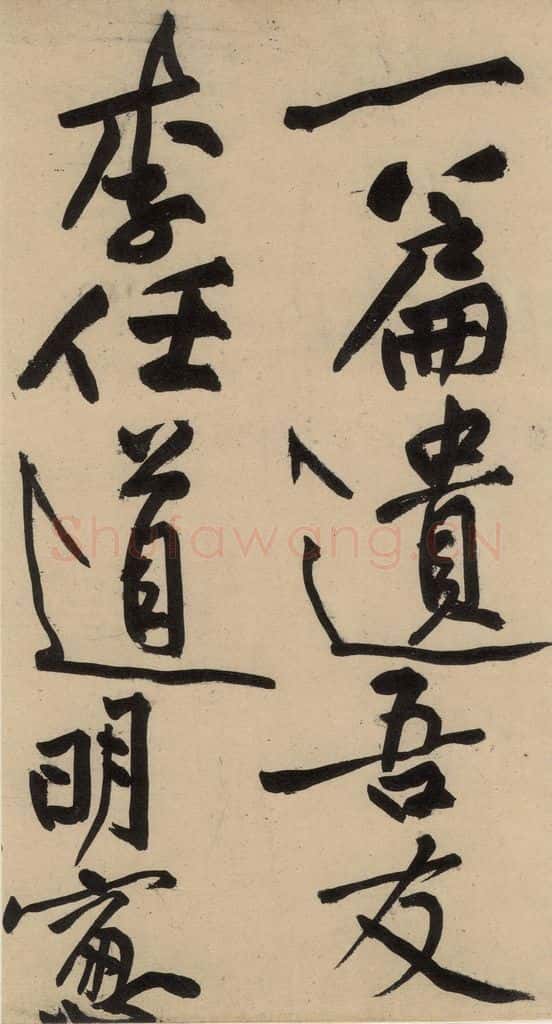 一篇遺吾友
李任道明窓
Shufawang.CN